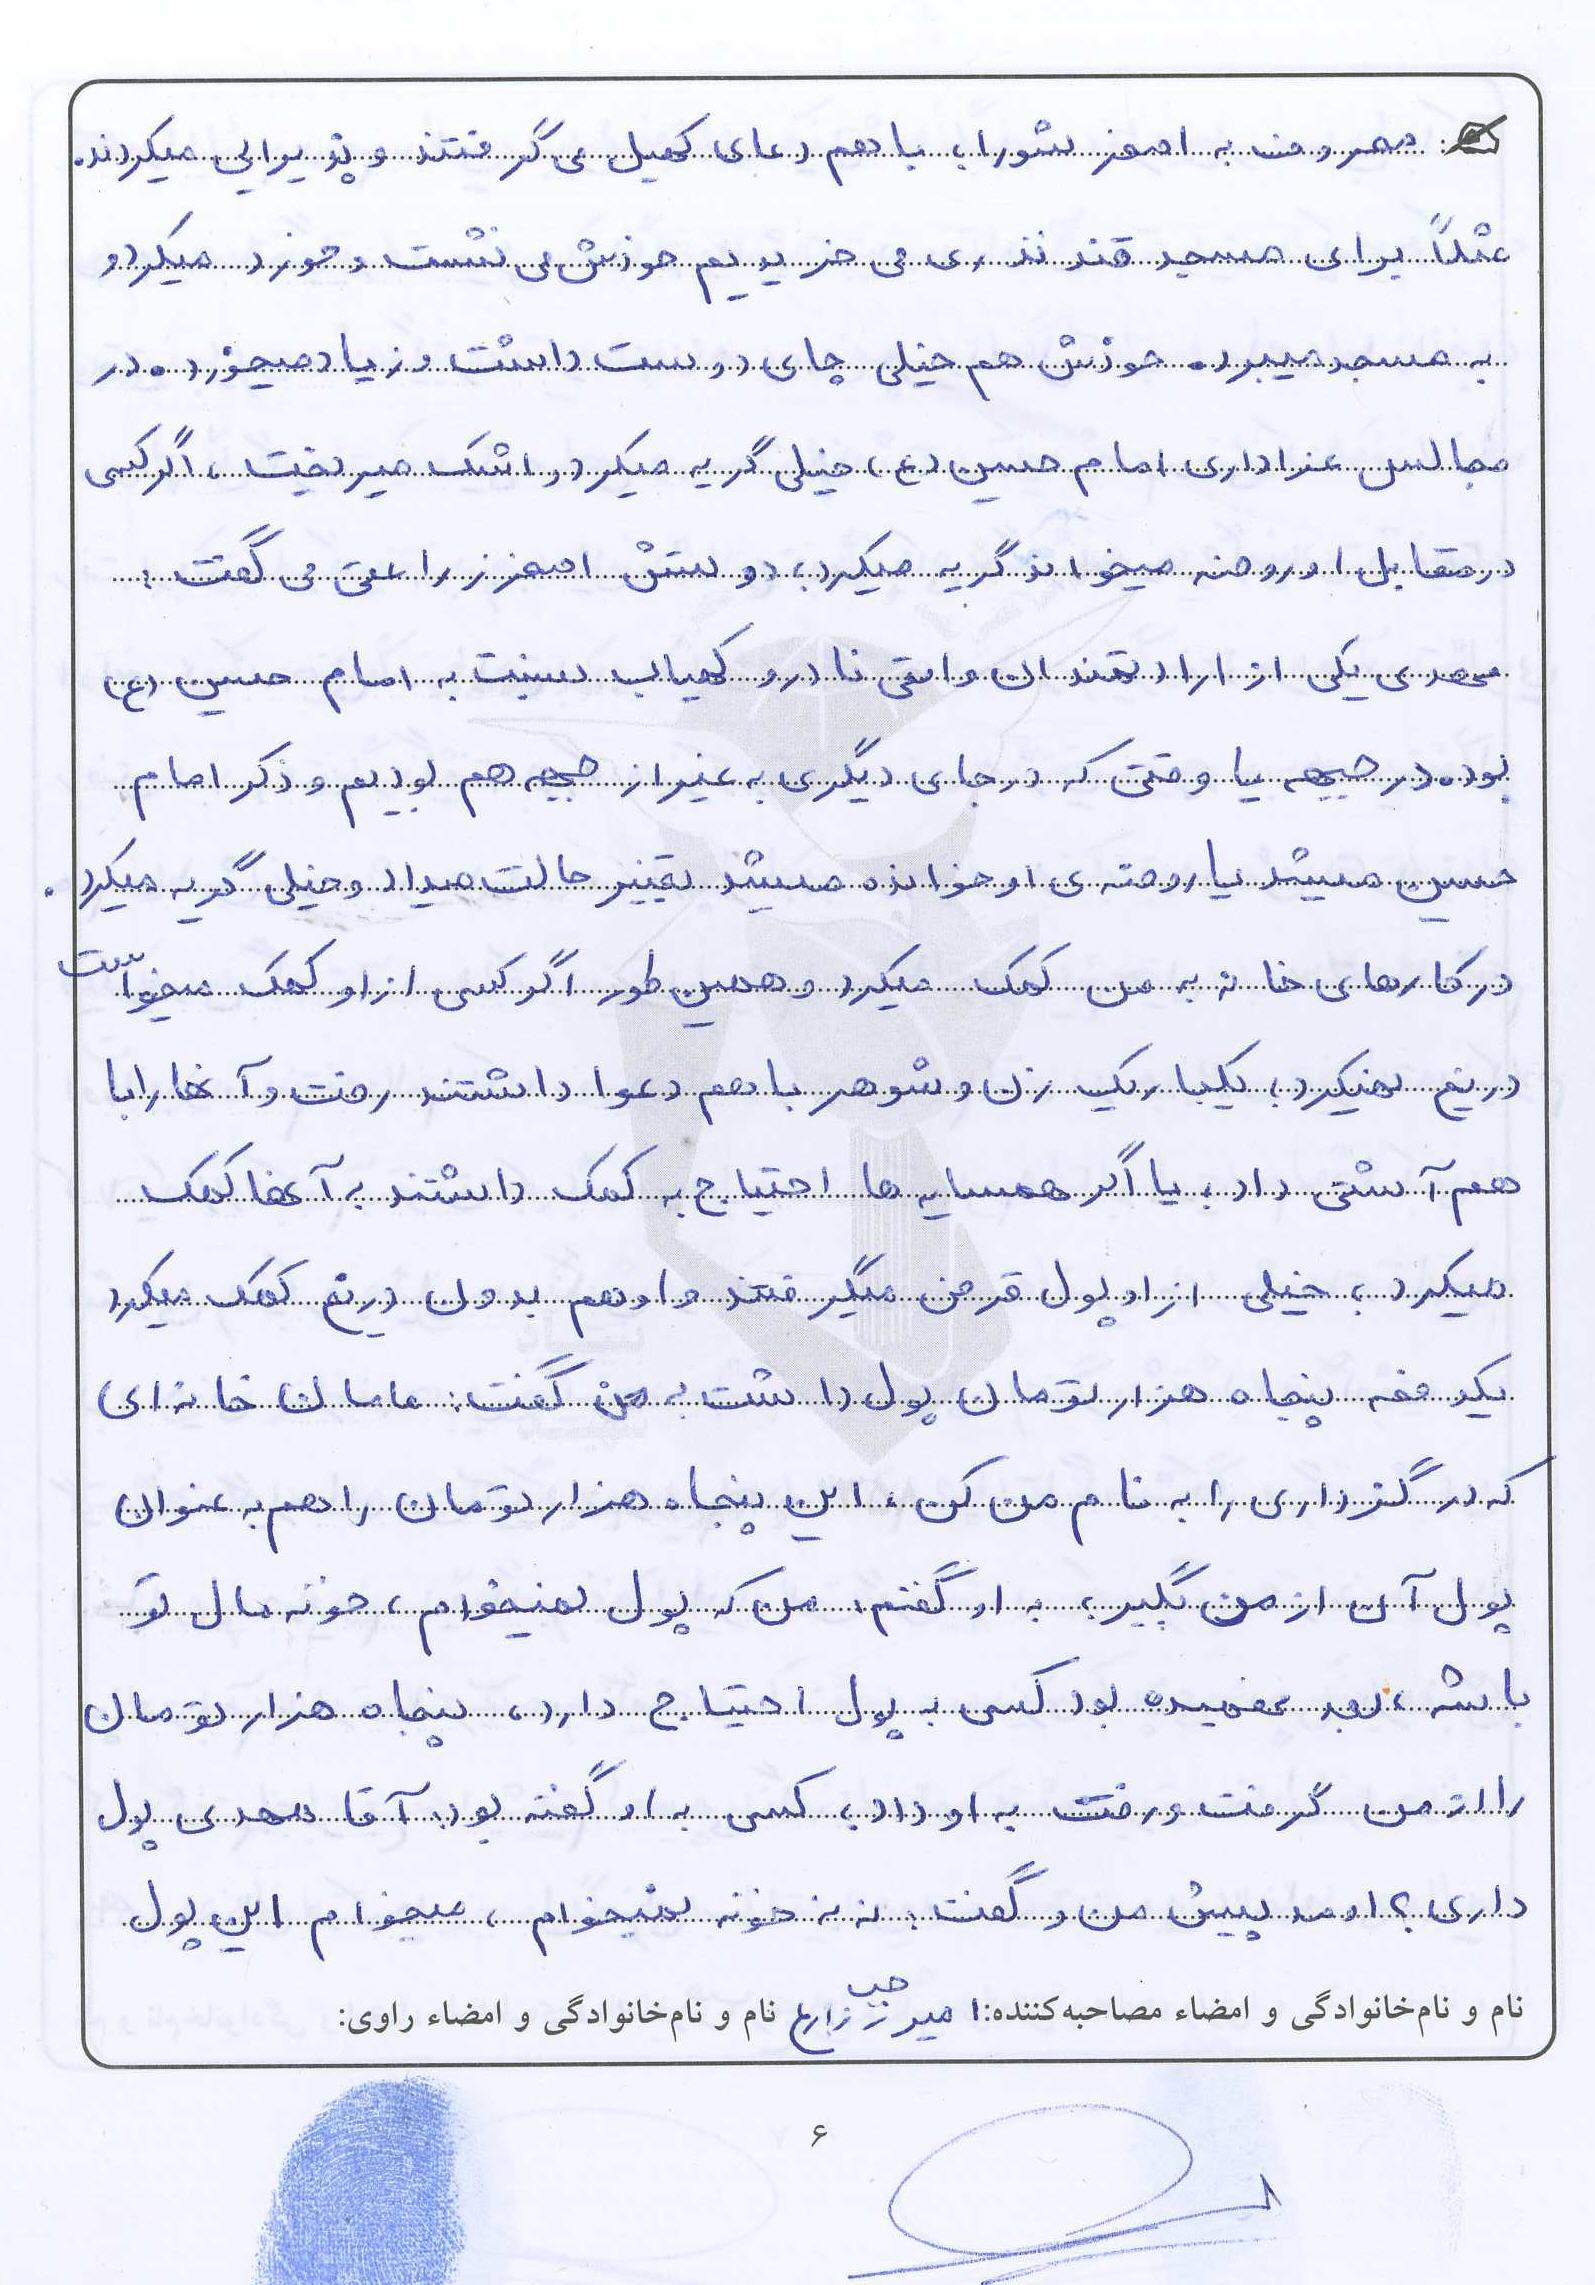 معروف به اصغر شوراب با هم دعای کمیل می گرفتند و پذیرایی میکردند.
مثلاً برای مسجد قند نذری می خریدیم خودش می نشست و خورد میکرد و
به مسجد میبرد. خودش هم خیلی چای دوست داشت و زیاد میخورد. در
مجالس عزاداری امام حسین (ع) خیلی گریه میکرد و اشک میریخت، اگر کسی
در مقابل او روضه میخواند گریه میکرد، دوستش اصغر زراعتی می گفت:
مهدی یکی از ارادتمندان واقعی نادر و کمیاب نسبت به امام حسین (ع)
بود. در جبهه یا وقتی که در جای دیگری به غیر از جبهه هم بودیم و ذکر امام
حسین میشد یا روضه ی او خوانده میشد تغییر حالت میداد و خیلی گریه میکرد.
در کارهای خانه به من کمک میکرد و همین طور اگر کسی از او کمک میخواست
دریغ نمیکرد، یکبار یک زن و شوهر با هم دعوا داشتند رفت و آنها را با
هم آشتی داد، یا اگر همسایه ها احتیاج به کمک داشتند به آنها کمک
میکرد، خیلی از او پول قرض میگرفتند و او هم بدون دریغ کمک میکرد
یکدفعه پنجاه هزار تومان پول داشت به من گفت: مامان خانه ای
که در گذر داری را به نام من کن، این پنجاه هزار تومان را هم به عنوان
پول آن از من بگیر، به او گفتم: من که پول نمیخوام، خونه مال تو
باشه، بعد فهمیده بود کسی به پول احتیاج دارد، پنجاه هزار تومان
را از من گرفت و رفت به او داد، کسی به او گفته بود: آقا مهدی پول
داری؟ اومد پیش من و گفت: ننه خونه نمیخوام، میخوام این پول
نام و نام‌خانوادگی و امضاء مصاحبه‌کننده: امیر رجب زارع نام و نام‌خانوادگی و امضاء راوی:
۶